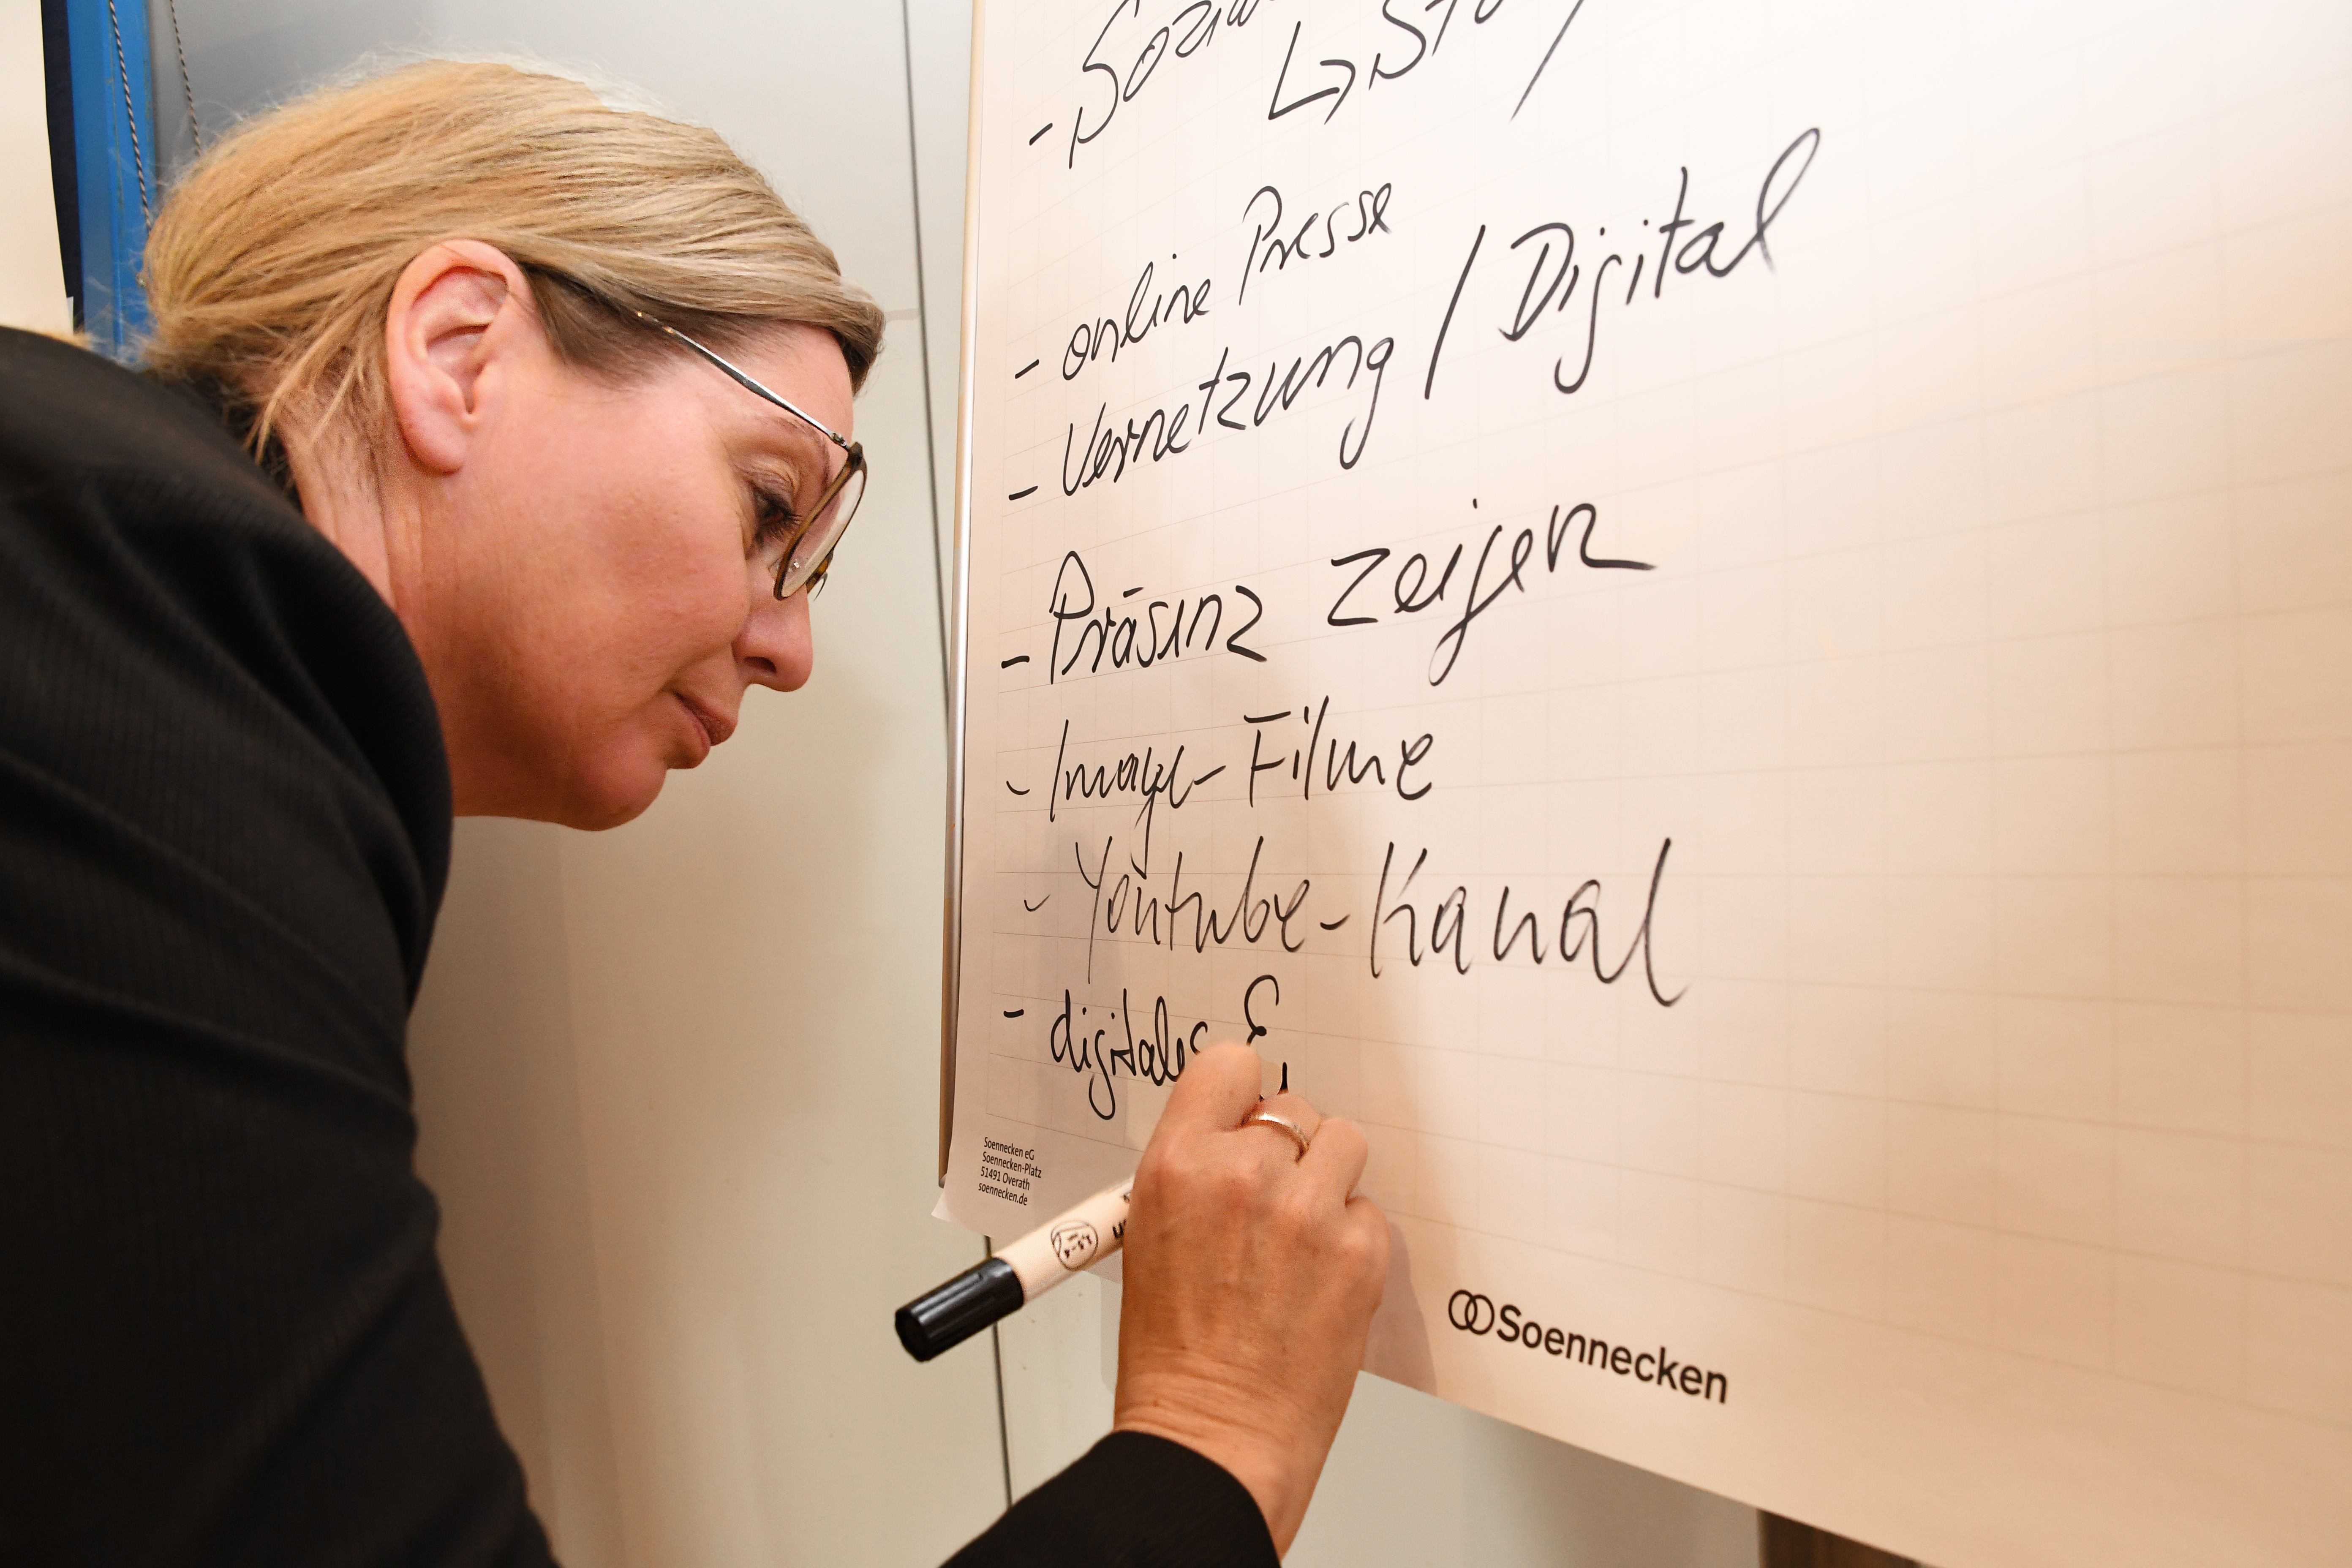 - online Presse
- Vernetzung / Digital
- Präsenz zeigen
- Image-Filme
- Youtube-Kanal
- digitales
Soennecken eG
Soennecken-Platz
51491 Overath
soennecken.de
Soennecken